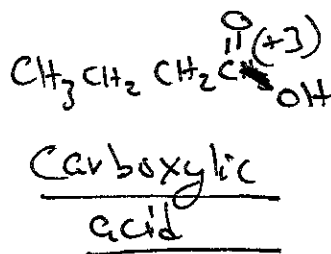 O
CH3 CH2 CH2 C (+3)
OH
Carboxylic
acid